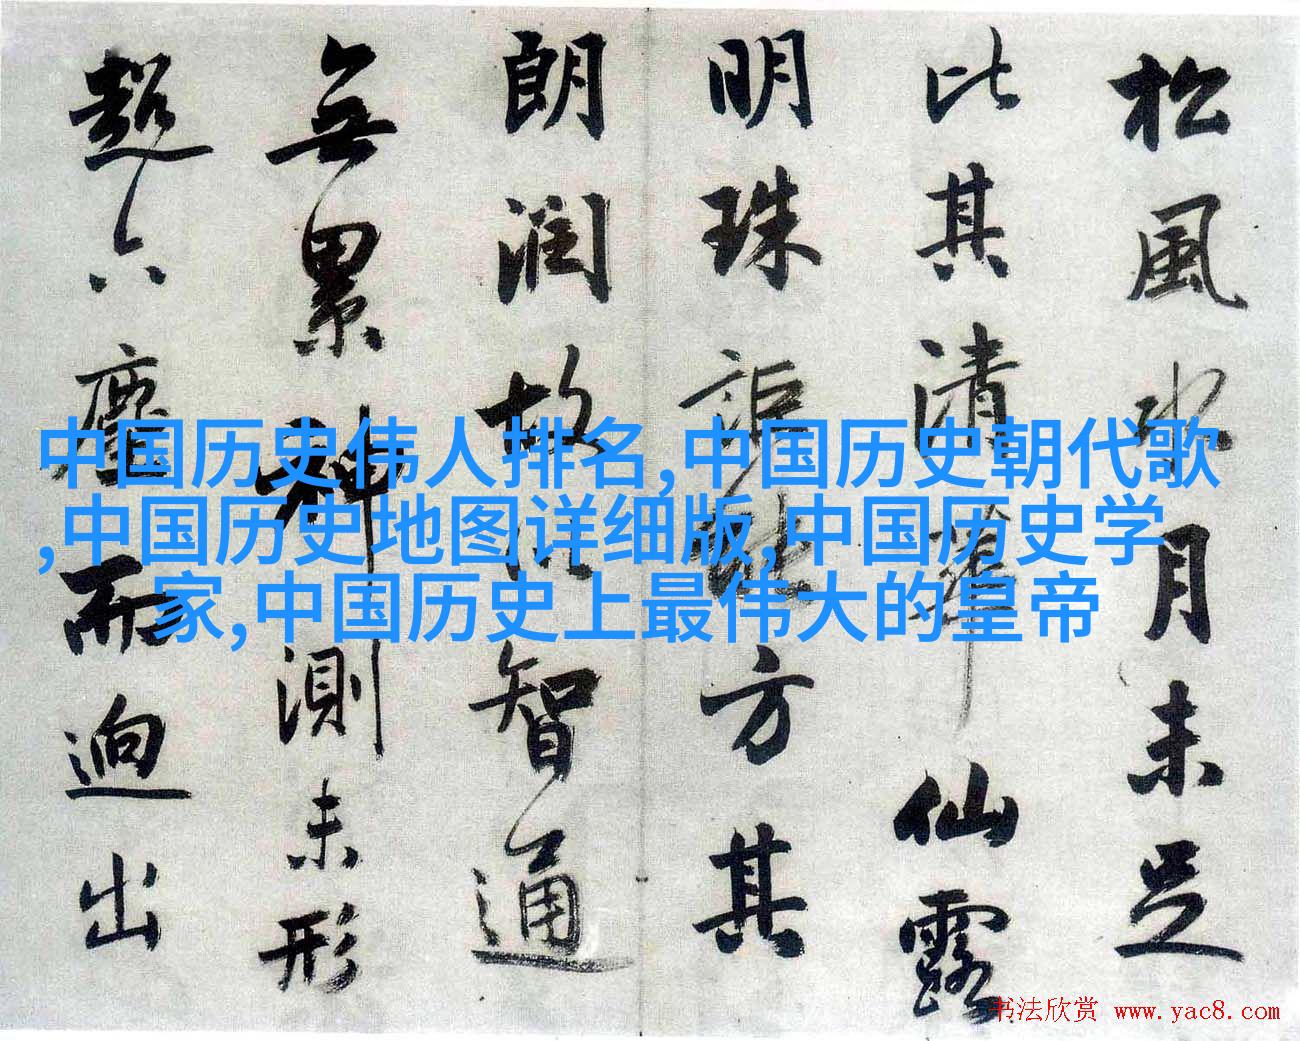 松風水月未足
比其清華仙露
明珠詎能方其
朗潤故以智通
無累神測未形
超六塵而迥出
中国历史伟人排名,中国历史朝代歌
,中国历史地图详细版,中国历史学
家,中国历史上最伟大的皇帝
书法欣赏 www.yac8.com